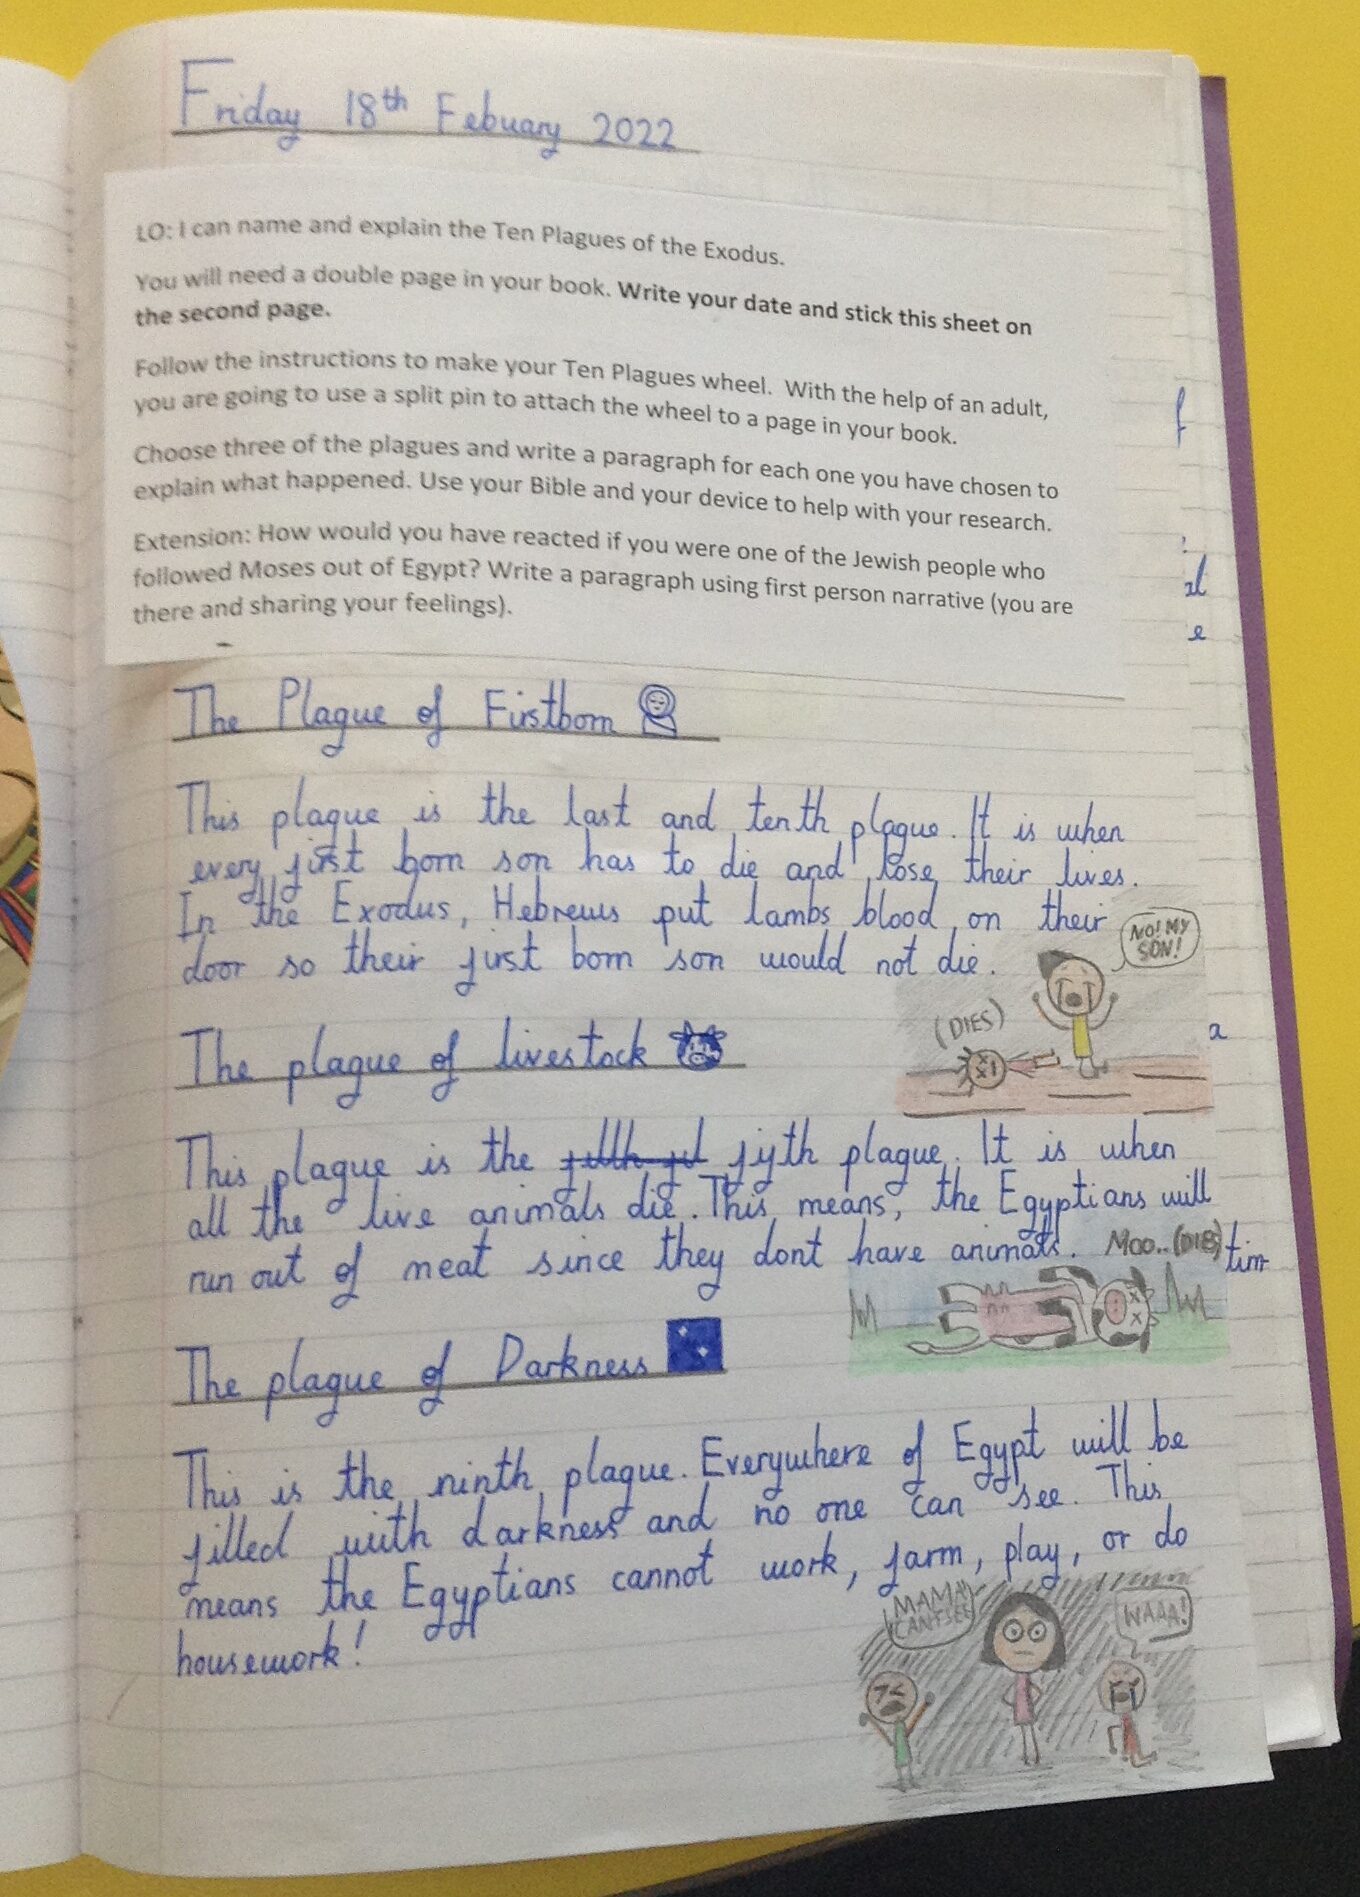 Friday 18th Febuary 2022
LO: I can name and explain the Ten Plagues of the Exodus.
You will need a double page in your book. Write your date and stick this sheet on
the second page.
Follow the instructions to make your Ten Plagues wheel. With the help of an adult,
you are going to use a split pin to attach the wheel to a page in your book.
Choose three of the plagues and write a paragraph for each one you have chosen to
explain what happened. Use your Bible and your device to help with your research.
Extension: How would you have reacted if you were one of the Jewish people who
followed Moses out of Egypt? Write a paragraph using first person narrative (you are
there and sharing your feelings).
The Plague of Firstborn
This plague is the last and tenth plague. It is when
every first born son has to die and lose their lives.
In the Exodus, Hebrews put lambs blood on their
door so their first born son would not die.
NO! MY
SON!
(DIES)
The plague of livestock
This plague is the fifth plague. It is when
all the live animals die. This means, the Egyptians will
run out of meat since they dont have animals.
Moo.. (DIES)
The plague of Darkness
This is the ninth plague. Everywhere of Egypt will be
filled with darkness and no one can see. This
means the Egyptians cannot work, farm, play, or do
housework!
MAMA
CANT SEE
WAAA!